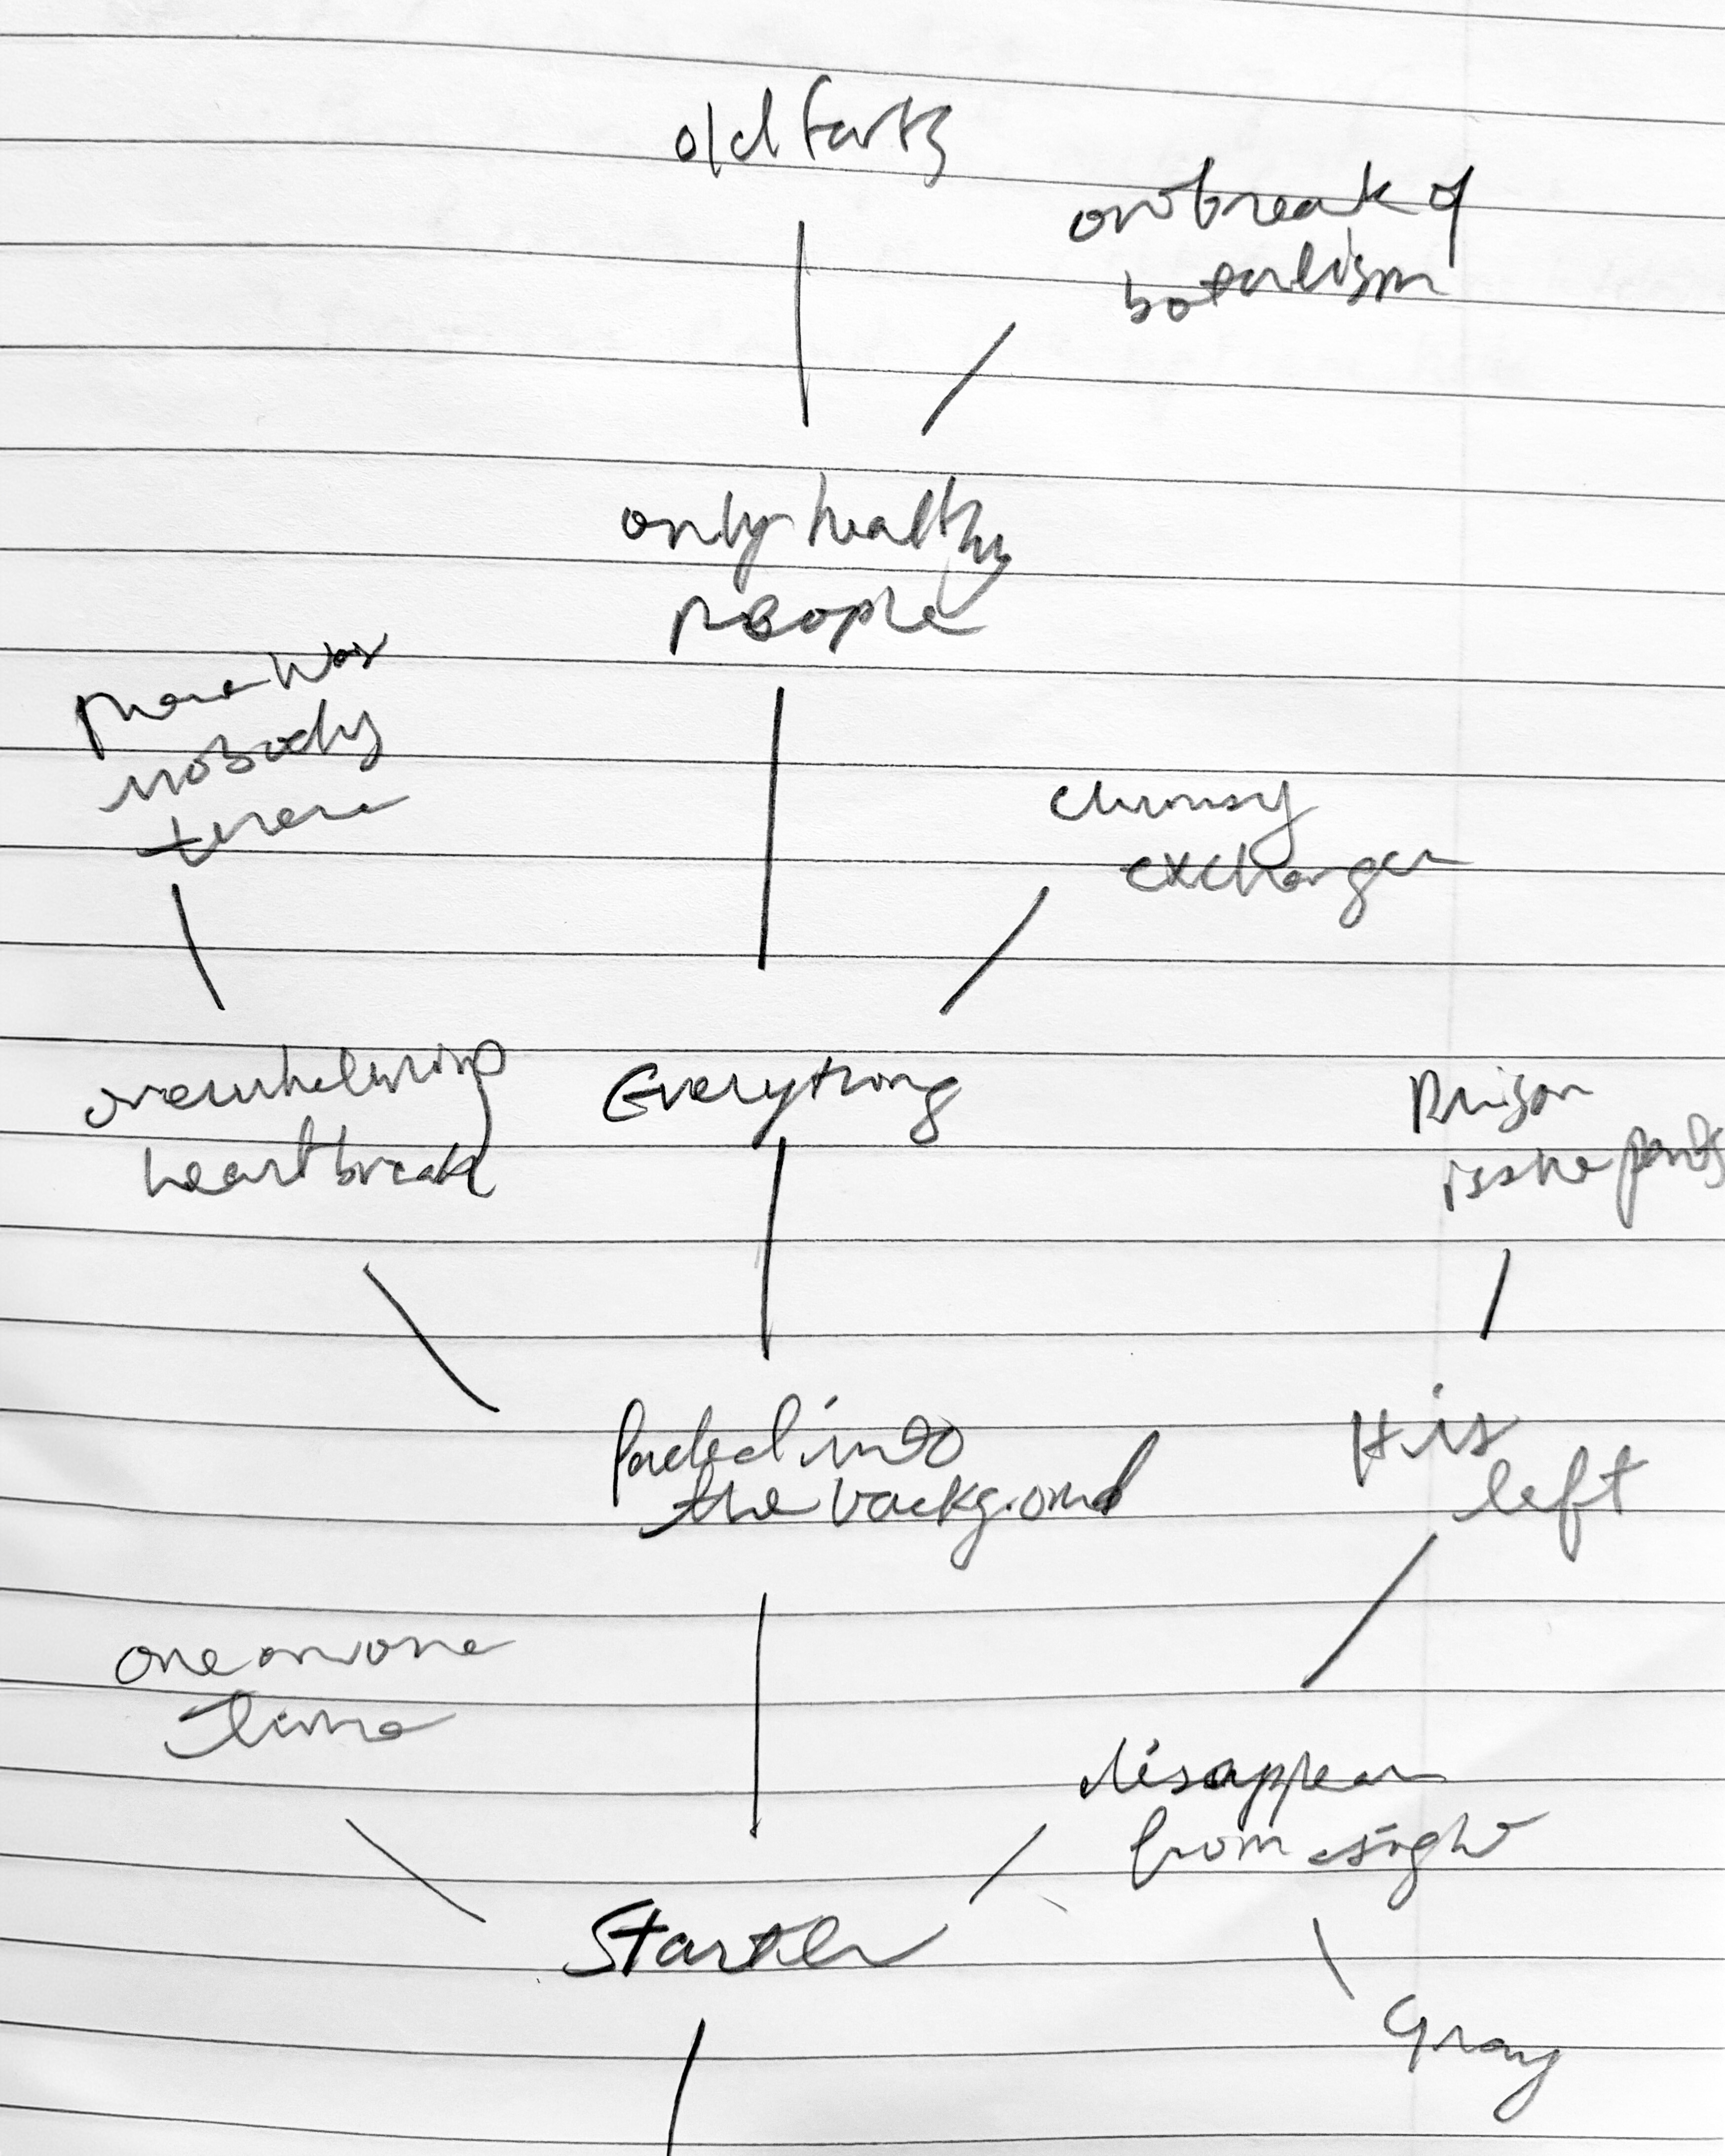 old farts
outbreak of
botulism
only healthy
people
there was
nobody
there
clumsy
exchange
overwhelming
heartbreak
Everything
Prison
is the pants
faded into
the backgrond
left
one on one
time
disappear
from sight
Startle
Gray